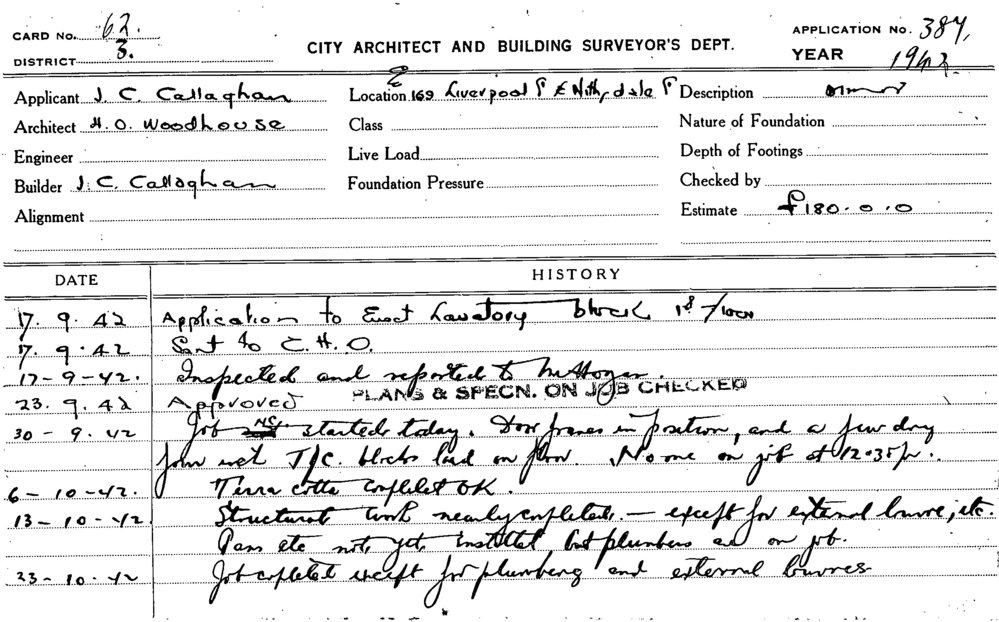 CARD No. 62.
DISTRICT 3.
CITY ARCHITECT AND BUILDING SURVEYOR'S DEPT.
APPLICATION No. 387.
YEAR 1942.
Applicant J. C. Callaghan
Location 169 Liverpool St & Nithsdale St
Description
Architect H. O. Woodhouse
Class
Nature of Foundation
Engineer
Live Load
Depth of Footings
Builder J. C. Callaghan
Foundation Pressure
Checked by
Alignment
Estimate £180.0.0
DATE HISTORY
17. 9. 42 Application to Erect Lavatory block 1st floor
17. 9. 42 Sent to C. H. O.
17-9-42. Inspected and reported to Mr Hogan.
23. 9. 42 Approved PLANS & SPECN. ON JOB CHECKED
30-9.42 Job started today. Door frames in position, and a few dry
T/C. blocks laid on floor. No one on job at 12.35 pm.
6-10-42. Terra cotta complete OK.
13-10-42. Structural work nearly complete — except for external louvre, etc.
Pans etc not yet installed, but plumbers are on job.
23-10.42 Job complete except for plumbing and external louvres